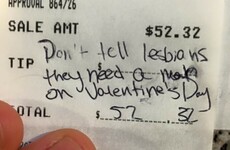 APPROVAL 864726
SALE AMT $52.32
Don't tell lesbians
TIP they need a man
on Valentine's Day
TOTAL $ 52 32